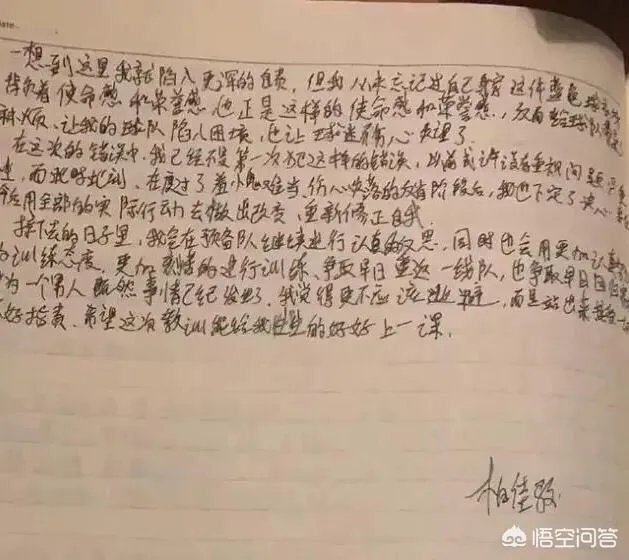 ate
一想到这里我就陷入更深的自责，但我从未忘记过自己身穿这件蓝色球衣
背负着使命感和荣誉感，也正是这样的使命感和荣誉感，反而给球队
麻烦、让我的球队陷入困境，也让球迷伤心失望了。
在这次的错误中，我已经不是第一次犯这样的错误，以前或许没有重视问题
而此时此刻，在度过了羞愧难当，伤心失落的阶段后，我也下定了决心
会用全部的实际行动去做出改变，重新修正自我。
接下去的日子里，我会在预备队继续进行认真的反思，同时也会用更加认真
的训练态度，更加刻苦的进行训练、争取早日重返一线队，也争取早日回归
为一个男人既然事情已经发生了，我觉得更不应该逃避，而是站出来接受一
好指责，希望这次教训能给我的好好上一课。
柏佳骏
悟空问答